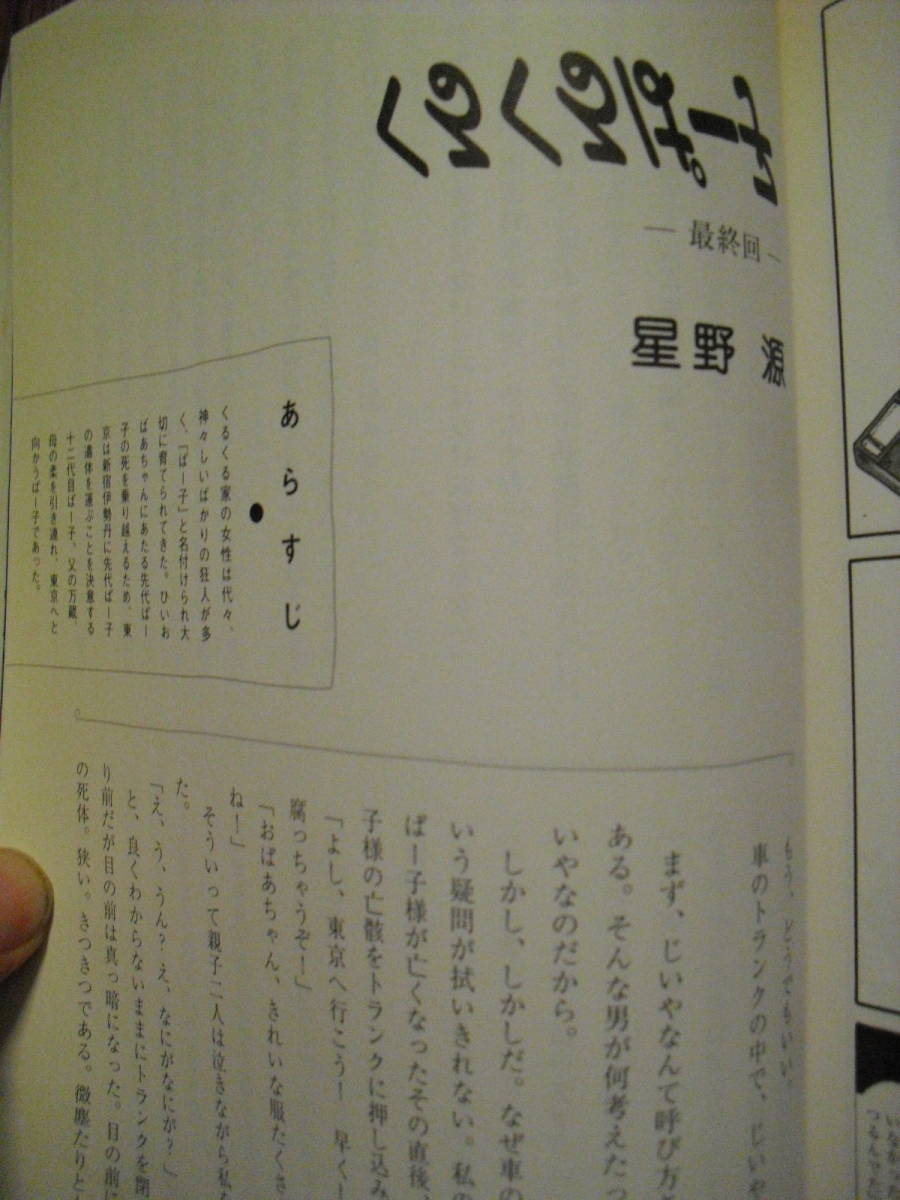 ―最終回―
星野 源
あらすじ
●
くるくる家の女性は代々、
神々しいばかりの狂人が多
く、「ぱー子」と名付けられ大
切に育てられてきた。ひいお
ばあちゃんにあたる先代ぱー
子の死を乗り越えるため、東
京は新宿伊勢丹に先代ぱー子
の遺体を運ぶことを決意する
十二代目ぱー子。父の万蔵、
母の柔を引き連れ、東京へと
向かうぱー子であった。
もう、どうでもいい。
車のトランクの中で、じいや
まず、じいやなんて呼び方
ある。そんな男が何考えたっ
いやなのだから。
しかし、しかしだ。なぜ車の
いう疑問が拭いきれない。私の
ぱー子様が亡くなったその直後、
子様の亡骸をトランクに押し込み
「よし、東京へ行こう！ 早くし
腐っちゃうぞー」
「おばあちゃん、きれいな服たくさ
ねー」
そういって親子二人は泣きながら私
た。
「え、う、うん？ え、なにがなにか？」
と、良くわからないままにトランクを閉
り前だが目の前は真っ暗になった。目の前に
の死体。狭い。きつきつである。微塵たりと